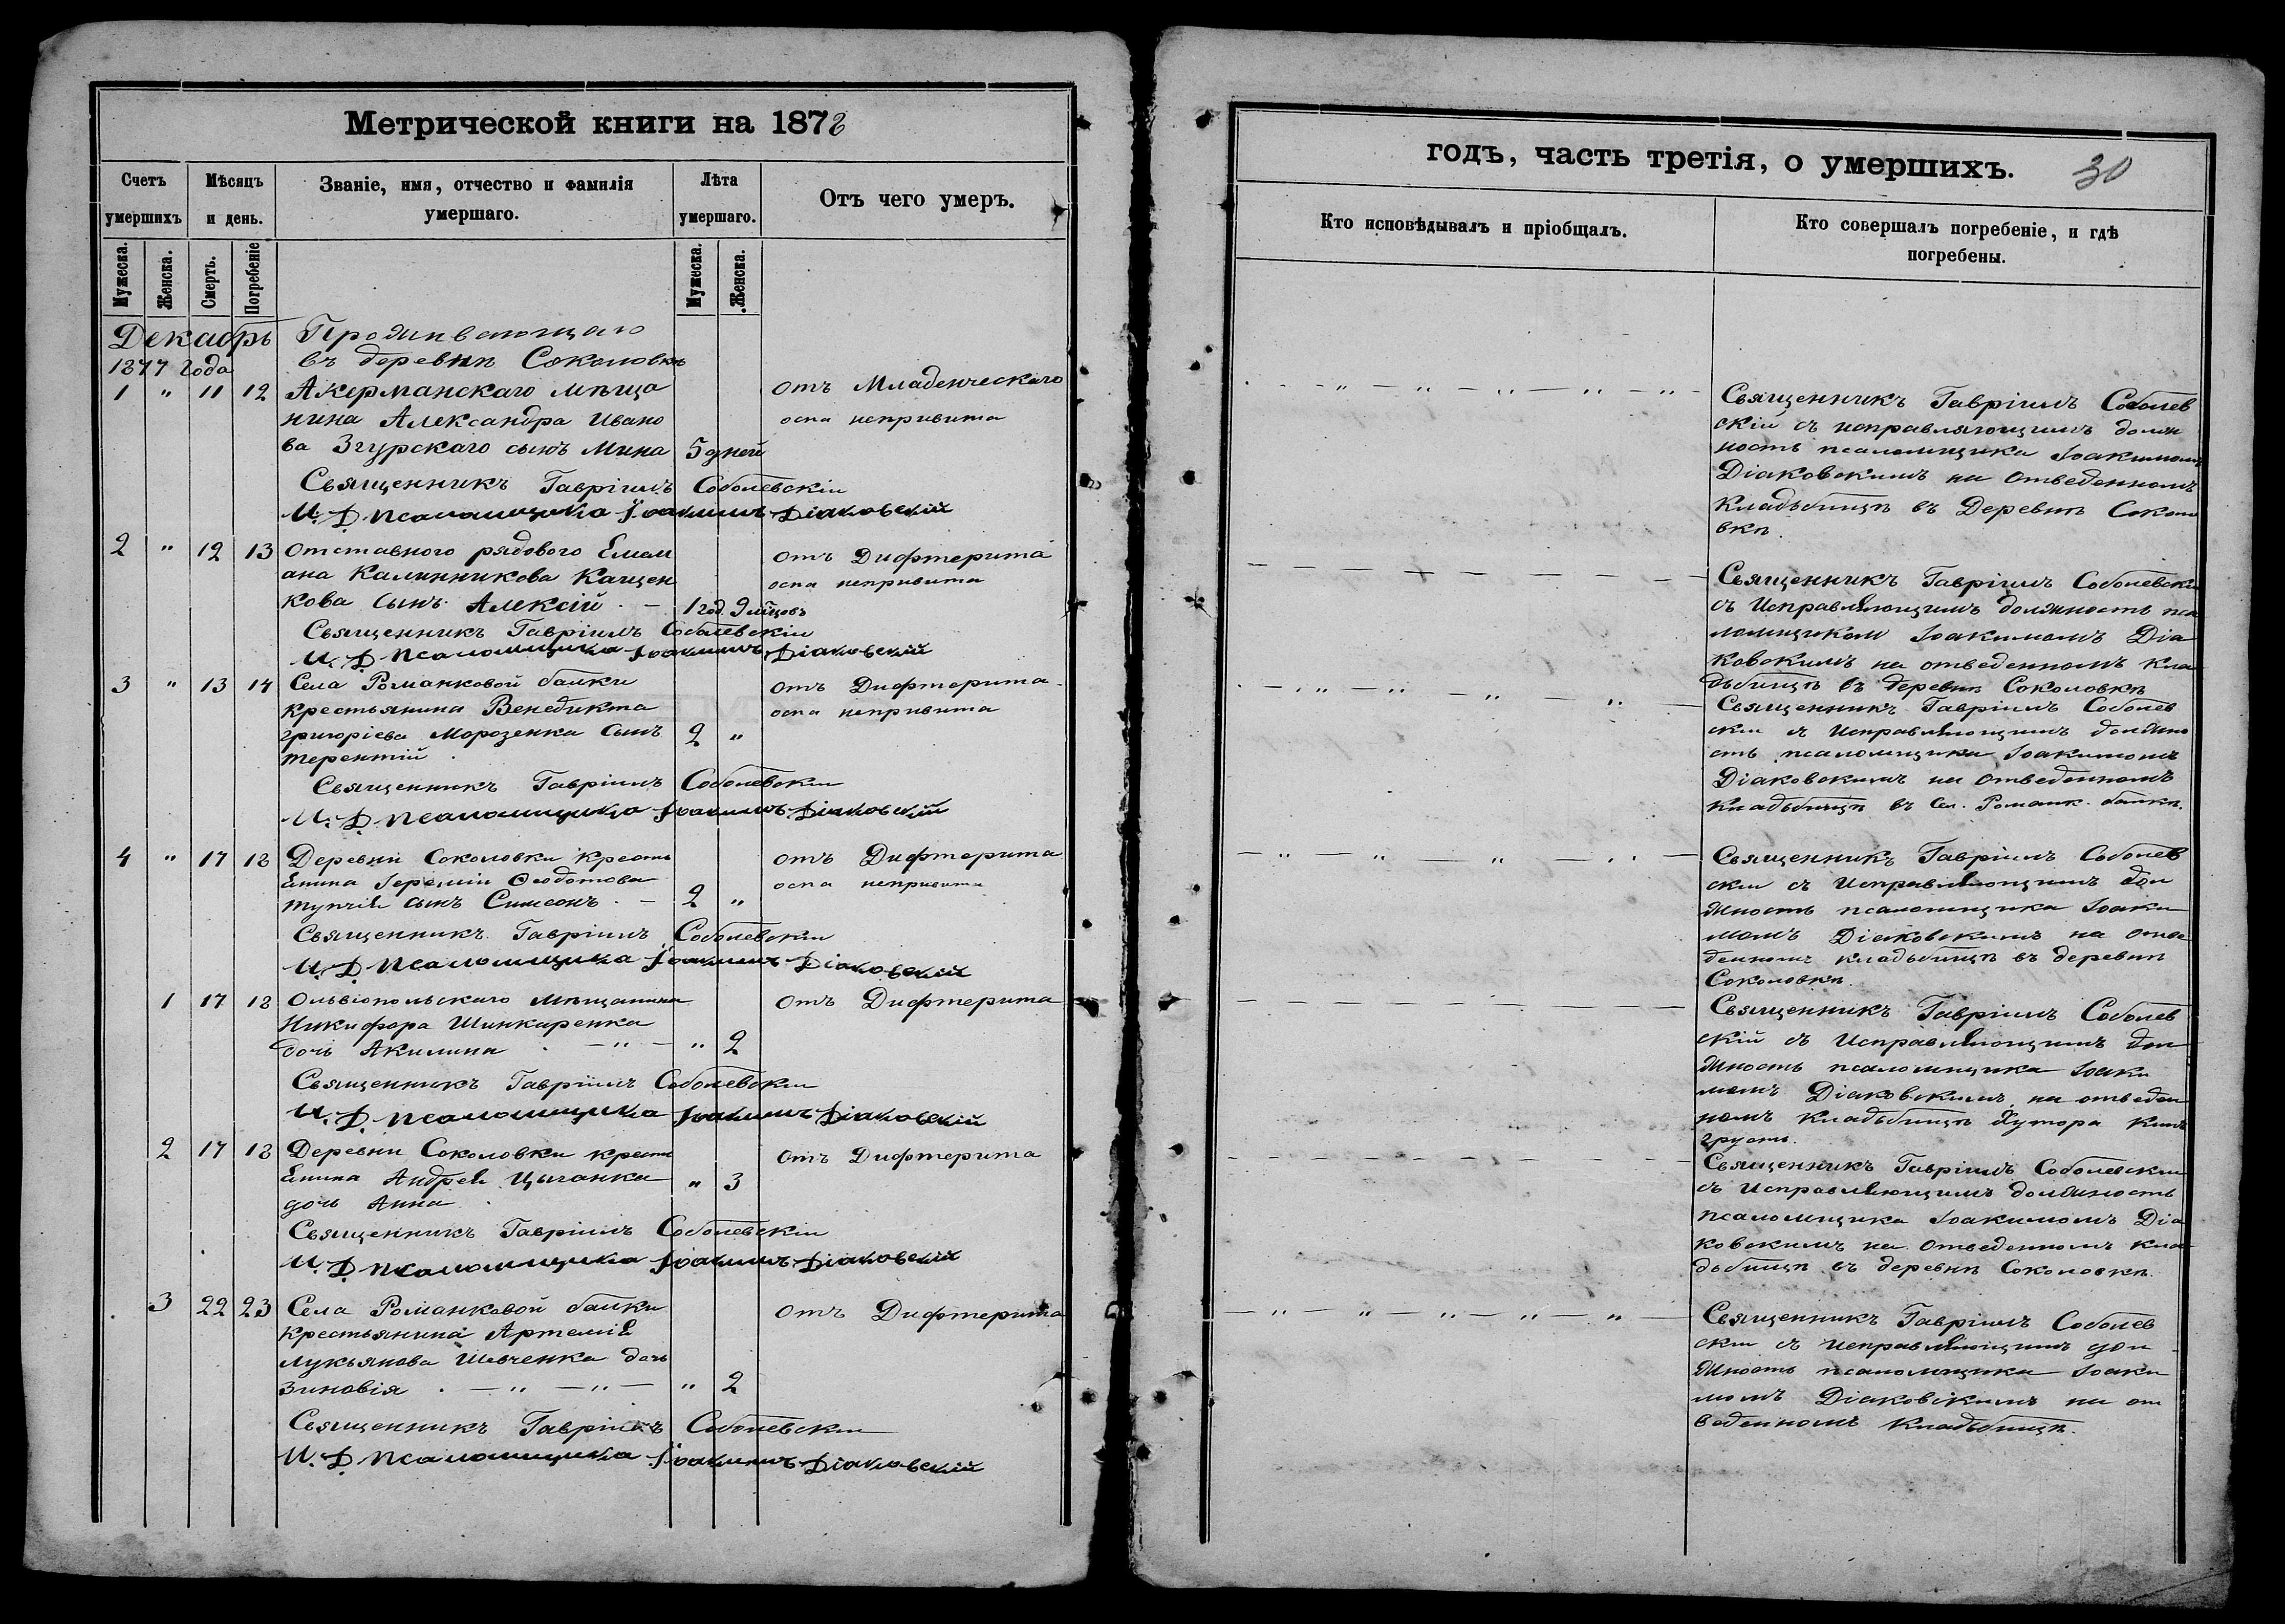 Метрической книги на 1878
Счетъ умершихъ
Мѣсяцъ и день.
Званіе, имя, отчество и фамилія умершаго.
Лѣта умершаго.
Отъ чего умеръ.
Мужеска.
Женска.
Смерть.
Погребеніе
Мужеска.
Женска.
Декабрь
1877 года
Проживающаго
въ деревнѣ Соколовкѣ
1 " 11 12 Акерманскаго мѣща
нина Александра Ивано
ва Згурскаго сынъ Мина 5 дней
отъ Младенческаго
оспа непривита
Священникъ Гавріилъ Соболевскій
И. Д. псаломщика Іоакимъ Діаковскій
2 " 12 13 Отставного рядового Емели
ана Калинникова Кащен
кова сынъ Алексій 1 год. 9 мѣцовъ
отъ Дифтерита
оспа непривита
Священникъ Гавріилъ Соболевскій
И. Д. псаломщика Іоакимъ Діаковскій
3 " 13 14 Села Романковой балки
крестьянина Венедикта
григоріева Морозенка сынъ 2 "
терентій
отъ Дифтерита
оспа непривита
Священникъ Гавріилъ Соболевскій
И. Д. псаломщика Іоакимъ Діаковскій
4 " 17 18 Деревни Соколовки крестья
нина Іереміи Ѳеодотова
сынъ Симеонъ 2 "
отъ Дифтерита
оспа непривита
Священникъ Гавріилъ Соболевскій
И. Д. псаломщика Іоакимъ Діаковскій
1 17 18 Ольвіопольскаго мѣщанина
Никифора Шинкаренка
дочь Акилина " 2
отъ Дифтерита
Священникъ Гавріилъ Соболевскій
И. Д. псаломщика Іоакимъ Діаковскій
2 17 18 Деревни Соколовки крестья
нина Андрея Цыганка " 3
дочь Анна
отъ Дифтерита
Священникъ Гавріилъ Соболевскій
И. Д. псаломщика Іоакимъ Діаковскій
3 22 23 Села Романковой балки
крестьянина Артемія
лукьянова Шевченка дочь
Зиновія " 2
отъ Дифтерита
Священникъ Гавріилъ Соболевскій
И. Д. псаломщика Іоакимъ Діаковскій
годъ, часть третія, о умершихъ. 30
Кто исповѣдывалъ и пріобщалъ.
Кто совершалъ погребеніе, и гдѣ
погребены.
Священникъ Гавріилъ Соболев
скій съ исправляющимъ долж
ность псаломщика Іоакимомъ
Діаковскимъ на отведенномъ
кладбищѣ въ Деревнѣ Соколо
вкѣ.
Священникъ Гавріилъ Соболевскій
съ Исправляющимъ должность пса
ломщиком Іоакимомъ Діа
ковскимъ на отведенномъ кла
дбищѣ въ деревнѣ Соколовкѣ
Священникъ Гавріилъ Соболев
скій съ Исправляющимъ должно
сть псаломщика Іоакимомъ
Діаковскимъ на отведенномъ
кладбищѣ въ Сел. Романк. балкѣ.
Священникъ Гавріилъ Соболев
скій съ Исправляющимъ дол
жность псаломщика Іоаки
момъ Діаковскимъ на отве
денномъ кладбищѣ въ деревнѣ
Соколовкѣ.
Священникъ Гавріилъ Соболев
скій съ Исправляющимъ дол
жность псаломщика Іоаки
момъ Діаковскимъ на отведен
номъ кладбищѣ Хутора
Священникъ Гавріилъ Соболевскій
съ Исправляющимъ должность
псаломщика Іоакимомъ Діа
ковскимъ на отведенномъ кла
дбищѣ въ деревнѣ Соколовкѣ.
Священникъ Гавріилъ Соболев
скій съ исправляющимъ дол
жность псаломщика Іоаки
момъ Діаковскимъ на от
веденномъ кладбищѣ.